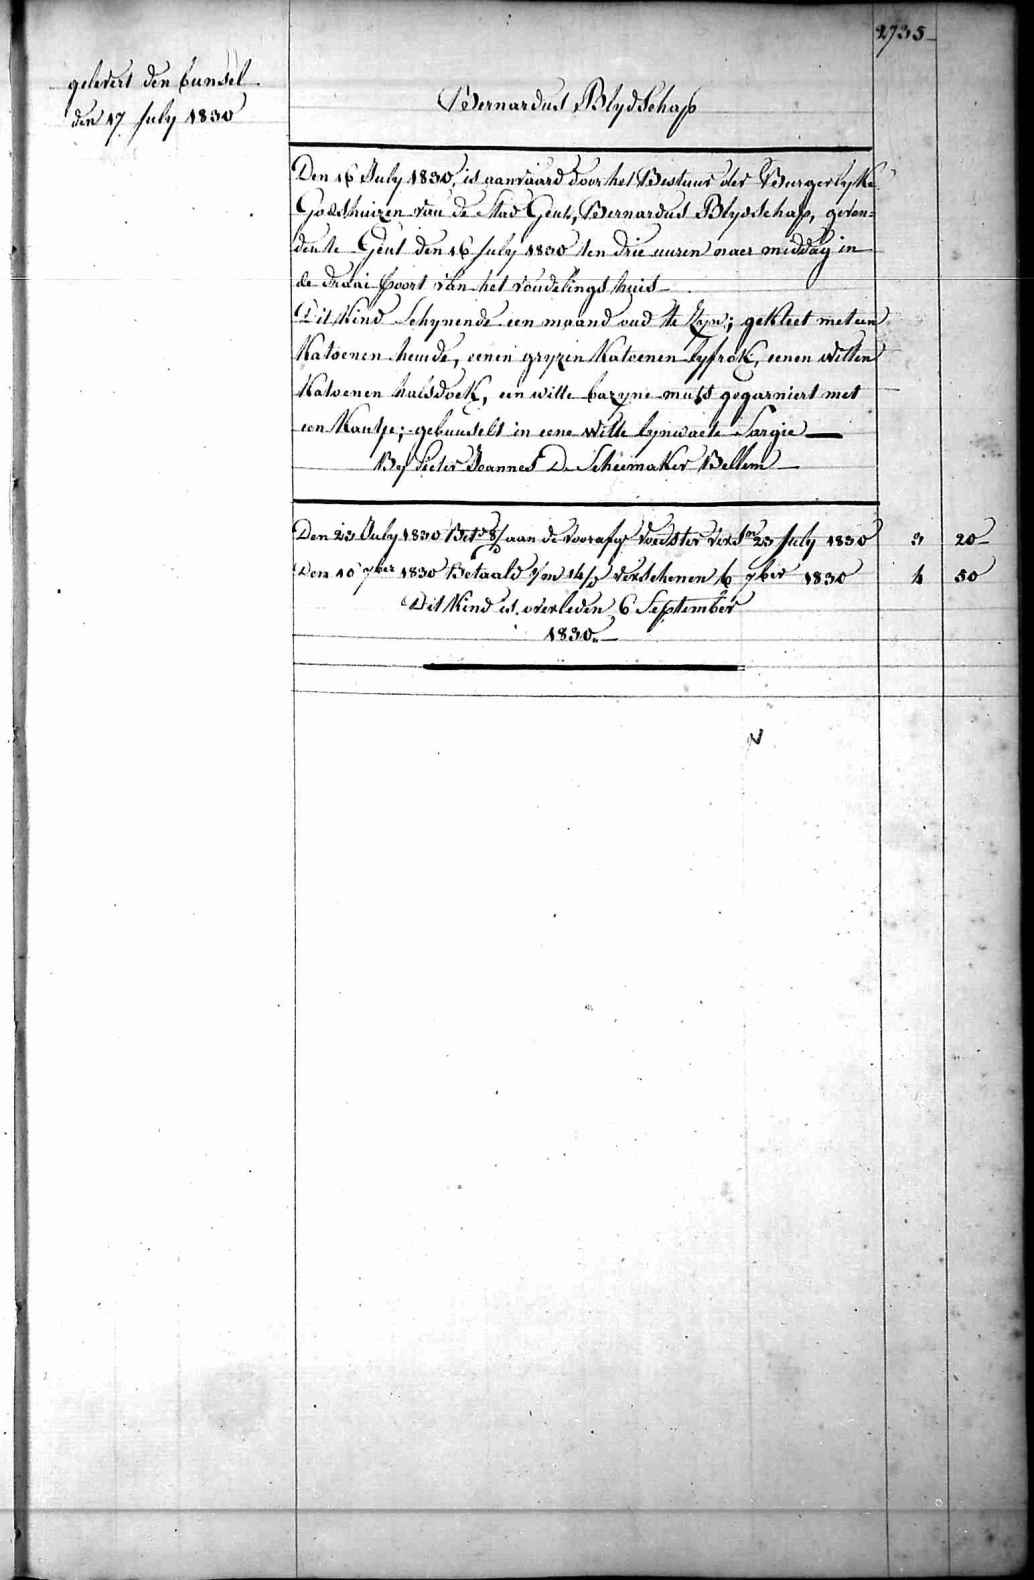 2735
gelevert den bunsel
den 17 July 1830
Bernardus Blydschap
Den 16 July 1830, is aanvaard door het Bestuur der Burgerlyke
Godshuizen van de Stad Gent, Bernardus Blydschap, gevon=
den te Gent den 16 July 1830 ten drie uuren naer middag in
de draai poort van het vondelings huis
Dit Kind schynende een maand oud te zyn; gekleet met een
Katoenen hemde, eenen gryzen Katoenen lyfrok, eenen witten
Katoenen halsdoek, een witte bazyne muts gegarniert met
een Kantje; gebunselt in eene witte lynwaete Sargie
By Pieter Joannes De Scheemaker Bellem
Den 23 July 1830 Bet. aan de voorafg. voedster 23 July 1830 3 20
Den 10 7ber 1830 Betaald verschenen 6 7ber 1830 4 50
Dit Kind is overleden 6 September
1830.